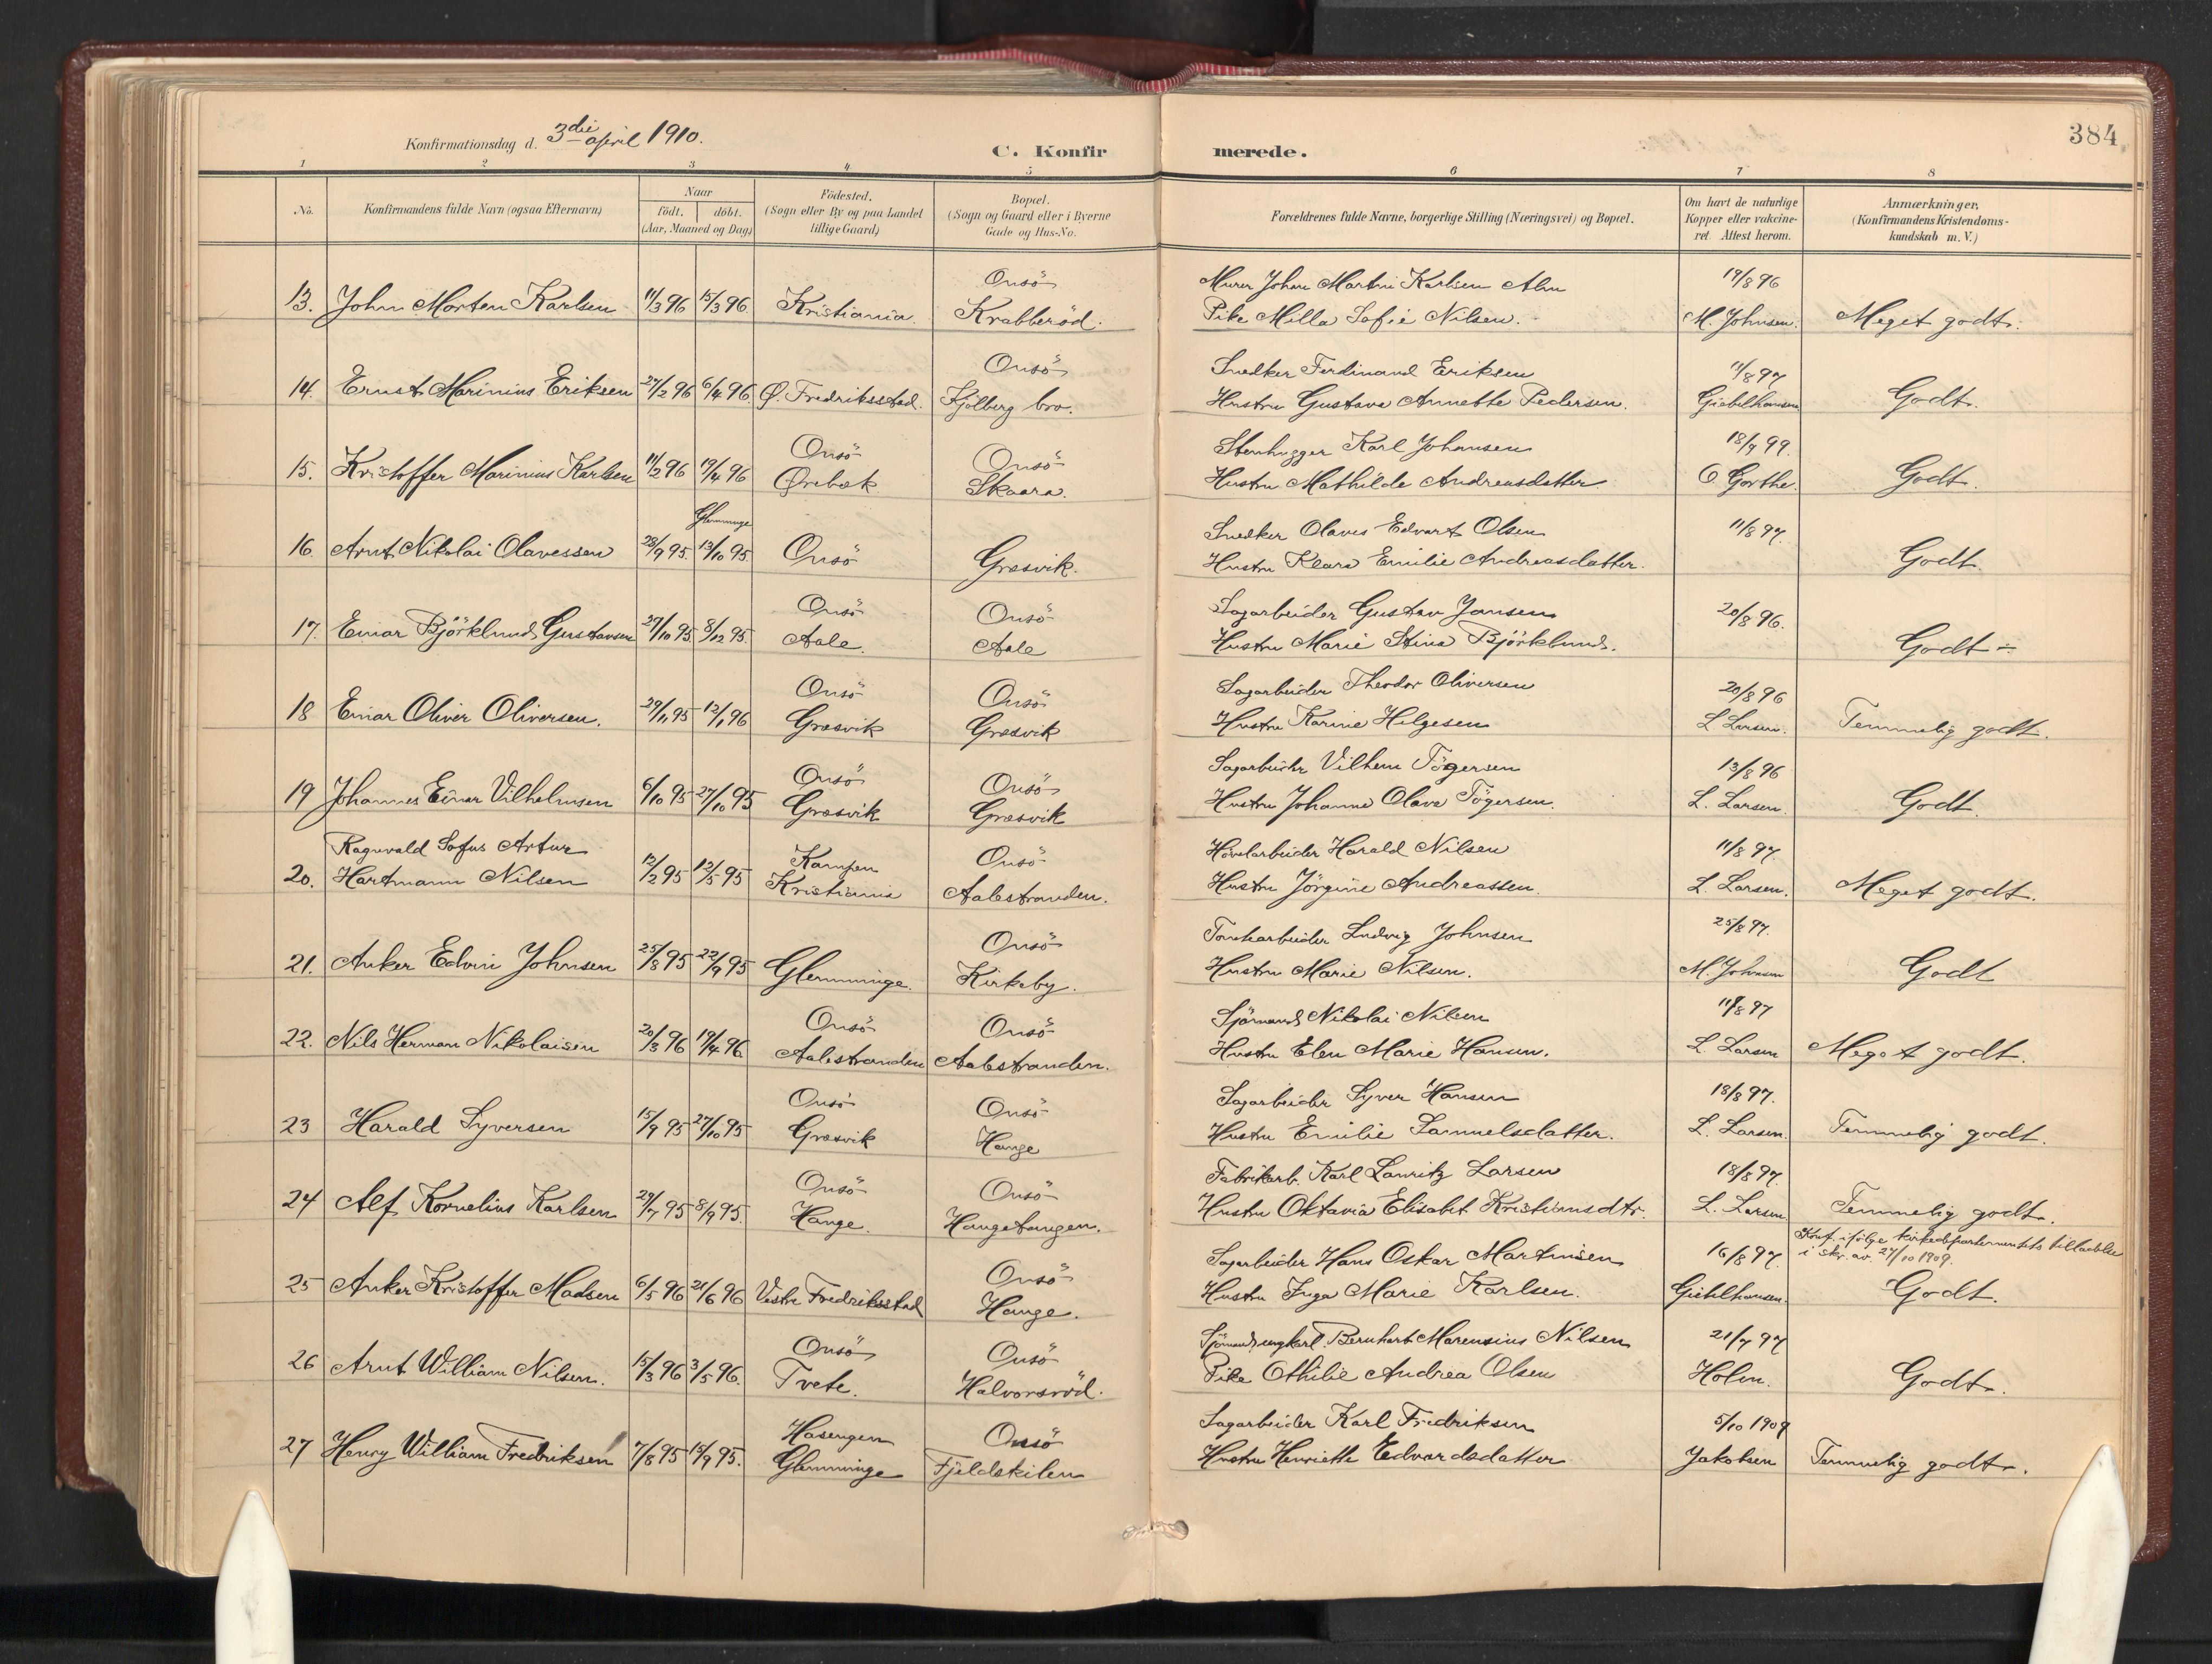 384
Konfirmationsdag d. 3die april 1910.
C. Konfirmerede.
1 2 3 4 5 6 7 8
No.
Konfirmandens fulde Navn (ogsaa Efternavn)
Naar
födt. döbt.
(Aar, Maaned og Dag)
Födested.
(Sogn eller By og paa Landet
tillige Gaard)
Bopæl.
(Sogn og Gaard eller i Byerne
Gade og Hus-No.
Forældrenes fulde Navne, borgerlige Stilling (Næringsvei) og Bopæl.
Om havt de naturlige
Kopper eller vakcine-
ret. Attest herom.
Anmærkninger,
(Konfirmandens Kristendoms-
kundskab m. V.)
Onsö Murer Johan Martin Karlsen Alm 19/8 96
13. John Morten Karlsen 11/3 96 15/3 96. Kristiania. Krabberöd. Pike Milla Sofie Nilsen. M. Johnsen. Meget godt.
Onsö Snedker Ferdinand Eriksen 11/8 97
14. Ernst Marinius Eriksen 27/2 96 6/4 96 Ø. Fredriksstad. Kjölberg bro. Hustru Gustava Annette Pedersen. Giebelhausen Godt.
Onsö Onsö Stenhugger Karl Johansen 18/9 99.
15. Kristoffer Marinius Karlsen 11/2 96 19/4 96 Ørebæk Skaara. Hustru Mathilde Andreasdatter O Gorthe. Godt.
Glemminge Snedker Olaves Edvart Olsen 11/8 97.
16. Arnt Nikolai Olavessen 28/9 95 13/10 95. Onsö Græsvik. Hustru Klara Emilie Andreasdatter. Godt.
Onsö Onsö Sagarbeider Gustav Jansen 20/8 96.
17. Einar Björklund Gustavsen 27/10 95. 8/12 95. Aale. Aale Hustru Marie Stina Björklund. Godt ÷
Onsö Onsö Sagarbeider Theodor Oliversen 20/8 96
18 Einar Oliver Oliversen. 29/11 95 12/1 96 Græsvik Græsvik Hustru Karine Helgesen L Larsen. Temmelig godt.
Onsö Onsö Sagarbeider Vilhem Tögersen 13/8 96
19 Johannes Einar Vilhelmsen 6/10 95 27/10 95 Græsvik Græsvik Hustru Johanne Olava Tögersen. L. Larsen. Godt
Ragnvald Sofus Artur Kampen Onsö Hövelarbeider Harald Nilsen 11/8 97.
20. Hartmann Nilsen 12/2 95 12/5 95 Kristiania Aalestranden. Hustru Jörgine Andreassen. L. Larsen. Meget godt.
Onsö Tomtearbeider Ludvig Johnsen 25/8 97.
21. Anker Edvin Johnsen 25/8 95 22/9 95 Glemminge. Kirkeby. Hustru Marie Nilsen. M. Johnsen Godt
Onsö Onsö Sjömand Nikolai Nilsen 11/8 97
22. Nils Herman Nikolaisen 20/3 96 19/4 96. Aalestranden Aalestranden. Hustru Elen Marie Hansen. L. Larsen Meget godt.
Onsö Onsö Sagarbeider Syver Hansen 18/8 97.
23 Harald Syversen 15/9 95 27/10 95 Græsvik Hauge Hustru Emilie Samuelsdatter. L. Larsen. Temmelig godt.
Onsö Onsö Fabrikarb. Karl Lauritz Larsen 18/8 97.
24 Alf Kornelius Karlsen 29/7 95 8/9 95. Hauge. Haugetangen. Hustru Oktavia Elisabet Kristiansdtr. L. Larsen Temmelig godt.
Konf. ifölge kirkedepartementets tilladelse
i skr. av 27/10 1909.
Onsö Sagarbeider Hans Oskar Martinsen 16/8 97.
25 Anker Kristoffer Madsen 6/5 96 21/6 96 Vestre Fredriksstad Hauge. Hustru Inga Marie Karlsen. Giehlhausen. Godt.
Onsö Onsö Sjömand, ungkarl. Bernhart Marensius Nilsen 21/7 97
26 Arnt William Nilsen. 15/3 96 3/5 96. Tvete. Halvorsröd. Pike Othilie Andrea Olsen Holm. Godt.
Hasengen Onsö Sagarbeider Karl Fredriksen 5/10 1909
27 Henry William Fredriksen 7/8 95 15/9 95. Glemminge Fjeldskilen Hustru Henriette Edvardsdatter Jakobsen Temmelig godt.